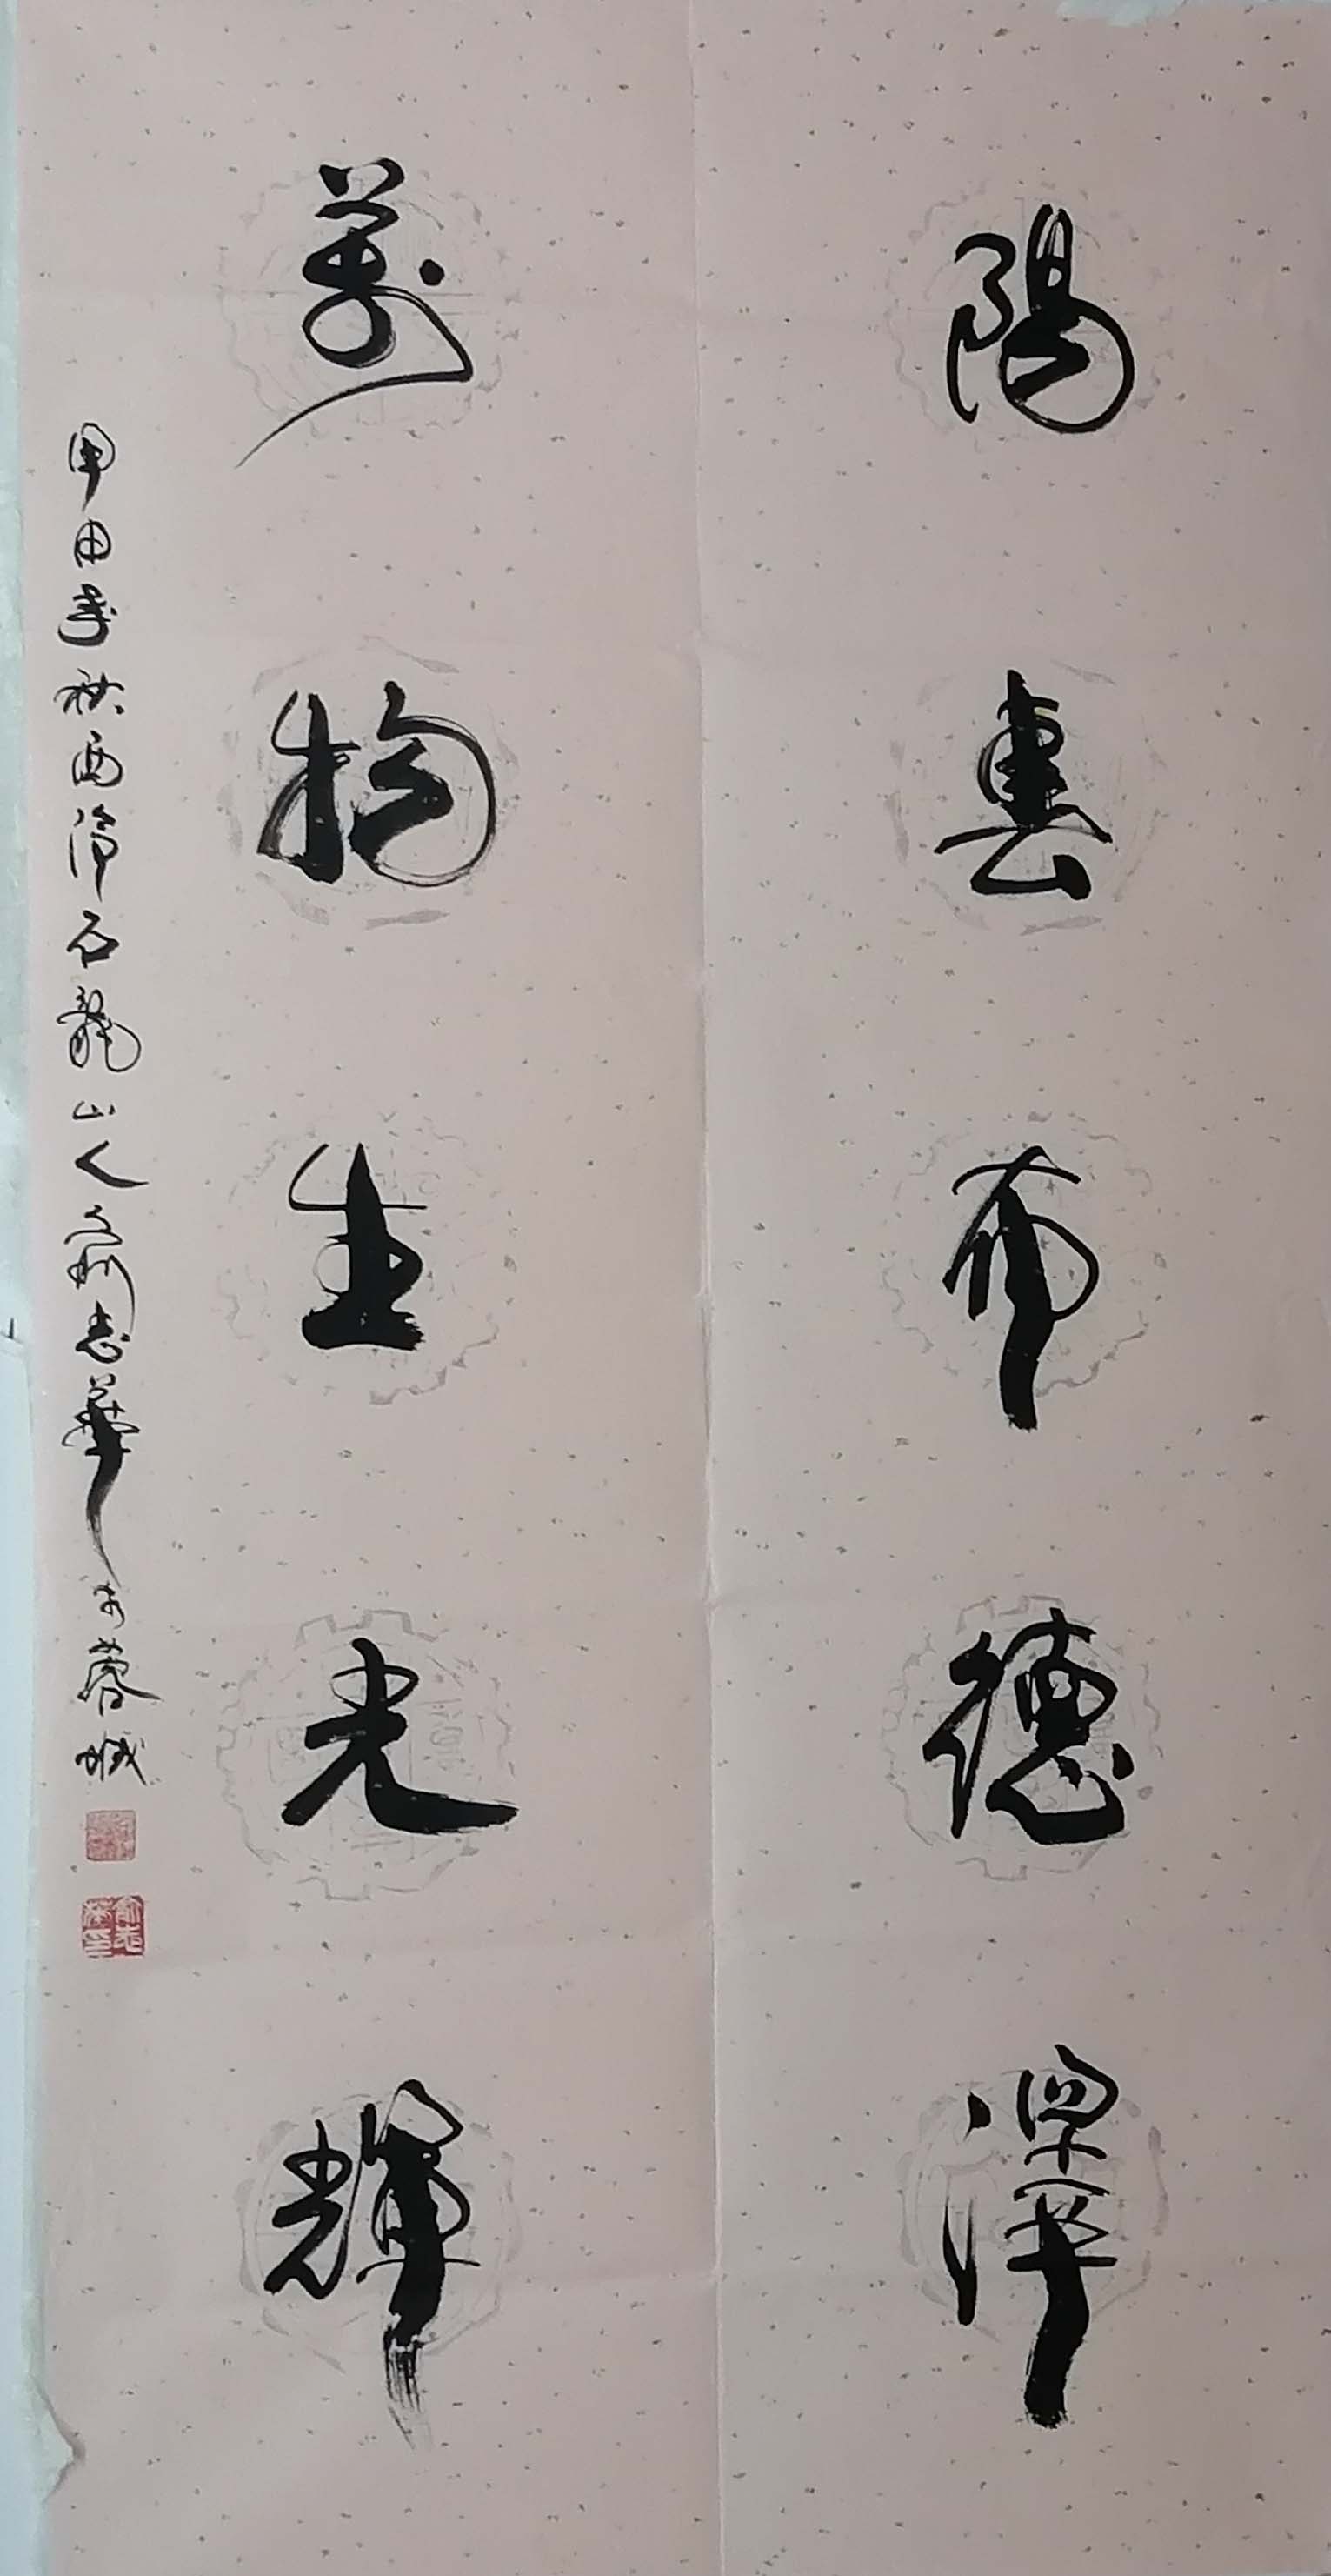 陽春布德澤
萬物生光輝
甲申年秋西泠石龍山人俞志華於蓉城